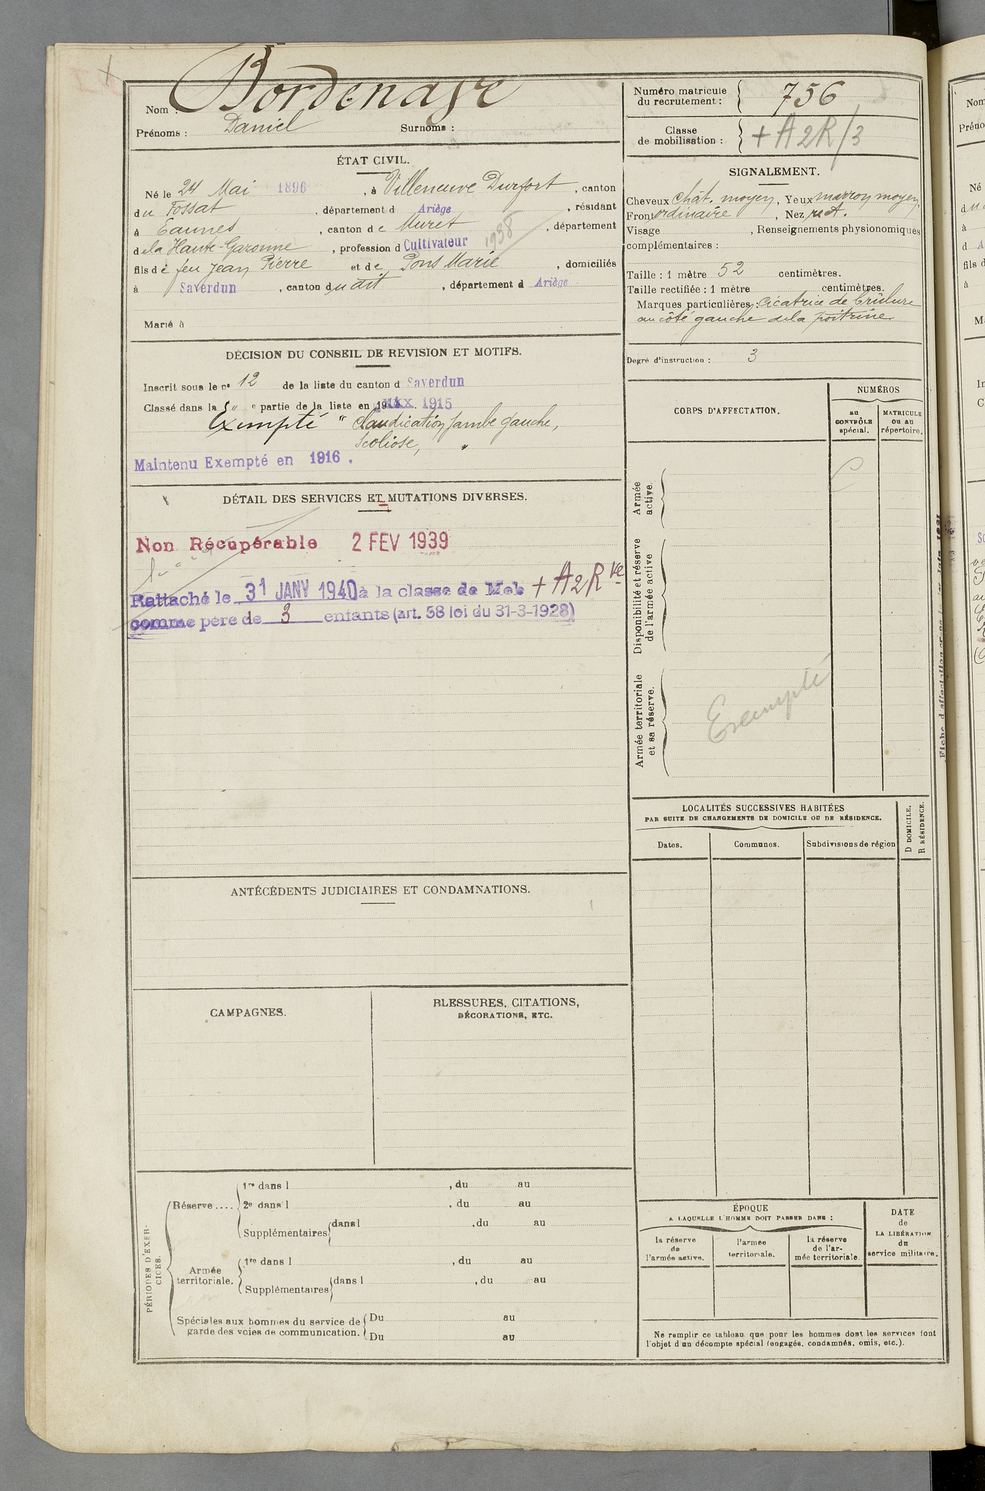 Nom : Bordenave
Prénoms : Daniel Surnoms :
Numéro matricule du recrutement : 756
Classe de mobilisation : + A2R/3
ÉTAT CIVIL.
Né le 24 Mai 1896, à Villeneuve Durfort, canton
du Fossat, département d Ariège, résidant
à Eaunes, canton de Muret, département
de la Haute-Garonne, profession d Cultivateur 1938
fils de feu Jean Pierre et de Pons Marie, domiciliés
à Saverdun, canton du dit, département d Ariège
Marié à
SIGNALEMENT.
Cheveux chât. moyen, Yeux marron moyen,
Front ordinaire, Nez rect.
Visage , Renseignements physionomiques
complémentaires :
Taille : 1 mètre 52 centimètres.
Taille rectifiée : 1 mètre centimètres.
Marques particulières : Cicatrice de brûlure
au côté gauche de la poitrine.
Degré d'instruction : 3
DÉCISION DU CONSEIL DE REVISION ET MOTIFS.
Inscrit sous le nº 12 de la liste du canton d Saverdun
Classé dans la " e partie de la liste en 191 1915
Exempté " Claudication jambe gauche,
scoliose, "
Maintenu Exempté en 1916 .
DÉTAIL DES SERVICES ET MUTATIONS DIVERSES.
Non Récupérable 2 FEV 1939
Rattaché le 31 JANV 1940 à la classe de Mob + A2R
comme père de 3 enfants (art. 58 loi du 31-3-1928)
CORPS D'AFFECTATION.
NUMÉROS
au CONTRÔLE spécial.
MATRICULE ou au répertoire.
Armée active.
Disponibilité et réserve de l'armée active
Armée territoriale et sa réserve.
Exempté
LOCALITÉS SUCCESSIVES HABITÉES
PAR SUITE DE CHANGEMENTS DE DOMICILE OU DE RÉSIDENCE.
Dates. Communes. Subdivisions de région
D DOMICILE.
R RÉSIDENCE.
ANTÉCÉDENTS JUDICIAIRES ET CONDAMNATIONS.
CAMPAGNES.
BLESSURES, CITATIONS,
DÉCORATIONS, ETC.
PÉRIODES D'EXERCICES.
Réserve....
1re dans l , du au
2e dans l , du au
Supplémentaires dans l , du au
Armée territoriale.
1re dans l , du au
Supplémentaires dans l , du au
Spéciales aux hommes du service de garde des voies de communication.
Du au
Du au
ÉPOQUE
A LAQUELLE L'HOMME DOIT PASSER DANS :
la réserve de l'armée active.
l'armée territoriale.
la réserve de l'armée territoriale
DATE de LA LIBÉRATION du service militaire.
Ne remplir ce tableau que pour les hommes dont les services font
l'objet d'un décompte spécial (engagés, condamnés, omis, etc.).